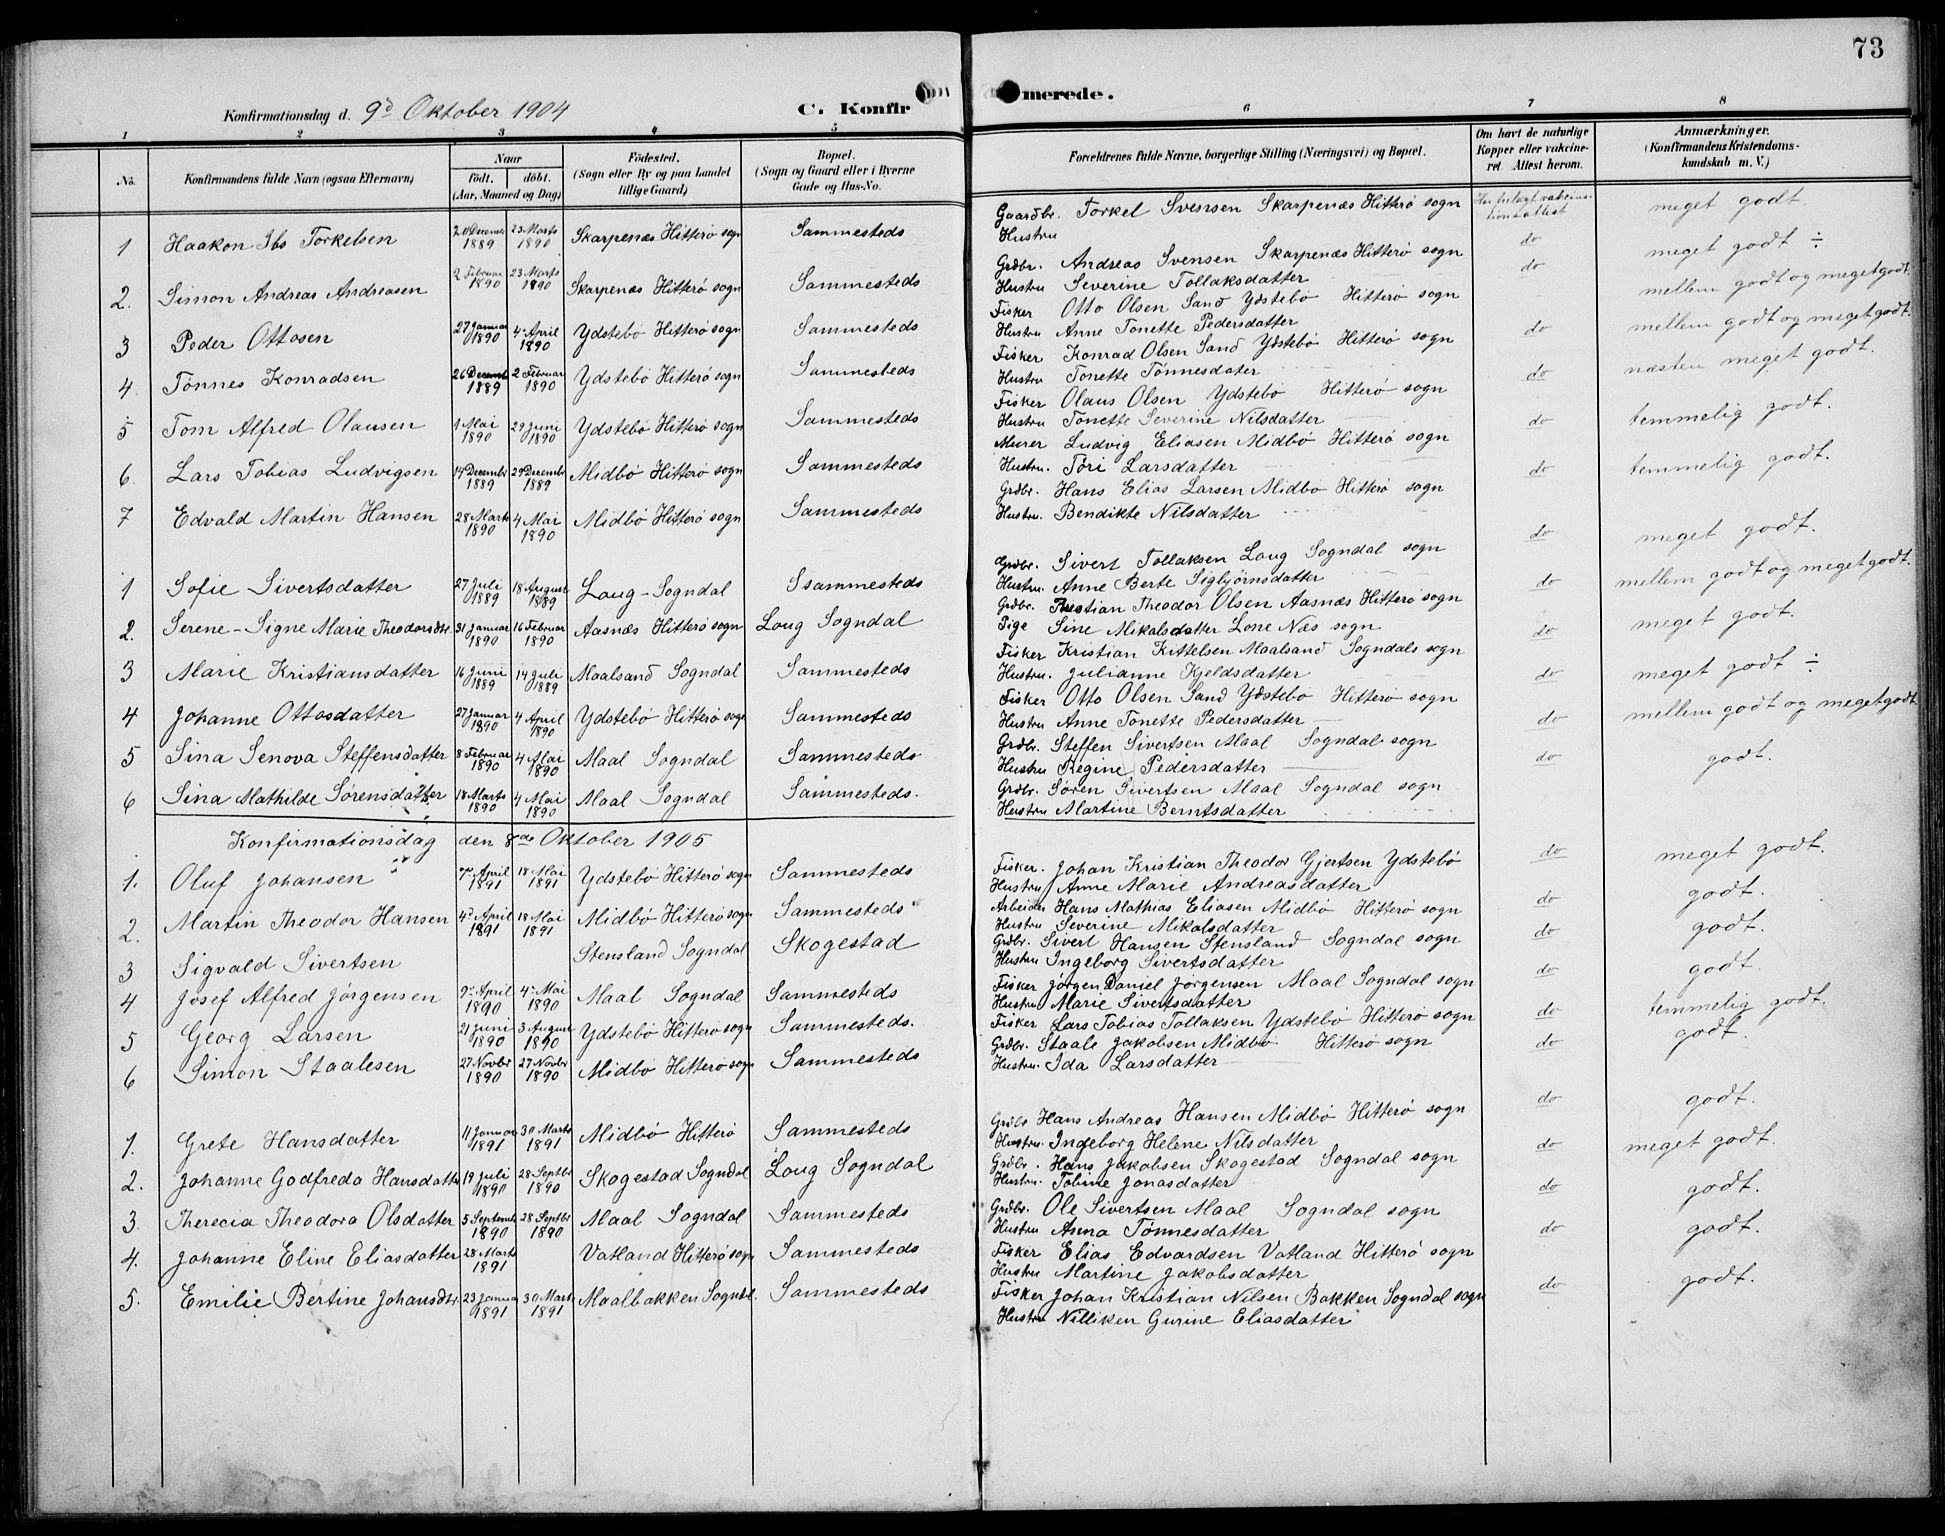 73
Konfirmationsdag d. 9d Oktober 1904 C. Konfir merede.
1 2 3 4 5 6 7 8
No. Konfirmandens fulde Navn (ogsaa Efternavn) Naar Födt. döbt. (Aar, Maaned og Dag) Födested. (Sogn eller By og paa Landet tillige Gaard) Bopæl. (Sogn og Gaard eller i Byerne Gade og Hus-No. Forældrenes fulde Navne, borgerlige Stilling (Næringsvei) og Bopæl. Om havt de naturlige Kopper eller vakcineret. Attest herom. Anmærkninger. (Konfirmandens Kristendomskundskab m. V.)
1 Haakon Ibs Torkelsen 20 December 1889 23 Marts 1890 Skarpenæs Hitterø sogn Sammesteds Gaardbr. Torkel Svensen Skarpenæs Hitterø sogn Har fremlagt vakcinationsattest meget godt.
Hustru
2. Simon Andreas Andreasen 2 Februar 1890 23 Marts 1890 Skarpenæs Hitterø sogn Sammesteds Grdbr. Andreas Svensen Skarpenæs Hitterø sogn do meget godt ÷
Hustru Severine Tollaksdatter
3 Peder Ottosen 27 Januar 1890 4 April 1890 Ydstebö Hitterø sogn Sammesteds Fisker Otto Olsen Sand Ydstebö Hitterø sogn do mellem godt og meget godt.
Hustru Anne Tonette Pedersdatter
4. Tönnes Konradsen 26 Decemb 1889 2 Februar 1890 Ydstebö Hitterø sogn Sammesteds Fisker Konrad Olsen Sand Ydstebö Hitterø sogn do mellem godt og meget godt.
Hustru Tonette Tönnesdater
5 Tom Alfred Olausen 1 Mai 1890 29 Juni 1890 Ydstebö Hitterø sogn Sammesteds Fisker Olaus Olsen Ydstebö Hitterø sogn do næsten meget godt.
Hustru Tonette Severine Nilsdatter
6. Lars Tobias Ludvigsen 14 Decembr 1889 29 Decembr 1889 Midbö Hitterø sogn Sammesteds Murer Ludvig Eliasen Midbö Hitterø sogn do temmelig godt.
Hustru. Töri Larsdatter
7 Edvald Martin Hansen 28 Marts 1890 4 Mai 1890 Midbö Hitterø sogn Sammesteds Grdbr. Hans Elias Larsen Midbö Hitterø sogn do temmelig godt.
Hustru. Bendikte Nilsdatter
1 Sofie Sivertsdatter 27 Juli 1889 18 August 1889 Loug - Sogndal Ssammesteds Grdbr. Sivert Tollaksen Loug Sogndal sogn do meget godt.
Hustru Anne Berte Sigbjörnsdatter
2. Serene-Signe Marie Theodorsdtr. 31 Januar 1890 16 Februar 1890 Aasnæs Hitterø sogn Loug Sogndal Grdbr. Theodor Olsen Aasnæs Hitterø sogn do mellem godt og meget godt.
Pige Sine Mikalsdatter Lone Næs sogn
3 Marie Kristiansdatter 16 Juni 1889 14 Juli 1889 Maalsand Sogndal Sammesteds Fisker Kristian Kittelsen Maalsand Sogndals sogn do meget godt.
Hustru. Julianne Kjeldsdatter
4 Johanne Ottosdatter 27 Januar 1890 4 April 1890 Ydstebö Hitterø sogn Sammesteds Fisker Otto Olsen Sand Ydstebö Hitterø sogn do meget godt ÷
Hustru Anne Tonette Pedersdatter
5 Sina Senova Steffensdatter 8 Februar 1890 4 Mai 1890 Maal Sogndal Sammesteds Grdbr. Steffen Sivertsen Maal Sogndal sogn do mellem godt og meget godt
Hustru Regine Pedersdatter
6 Sina Mathilde Sørensdatter 18 Marts 1890 4 Mai 1890 Maal Sogndal Sammesteds. Grdbr. Søren Sivertsen Maal Sogndal sogn do godt.
Hustru Martine Berntsdatter
Konfirmationsdag den 8de Oktober 1905
1. Oluf Johansen 7de April 1891 18 Mai 1891 Ydstebö Hitterø sogn Sammesteds Fisker. Johan Kristian Theodor Gjertsen Ydstebö do meget godt.
Hustru Anne Marie Andreasdatter
2. Martin Theodor Hansen 4d April 1891 18 Mai 1891 Midbö Hitterø sogn Sammesteds Arbeider Hans Mathias Eliasen Midbö Hitterø sogn do godt.
Hustru Severine Mikalsdatter
3 Sigvald Sivertsen Stensland Sogndal Skogestad Grdbr. Sivert Hansen Stensland Sogndal sogn do godt.
Hustru Ingeborg Sivertsdatter
4 Josef Alfred Jørgensen 9de April 1890 4de Mai 1890 Maal Sogndal Sammesteds Fisker Jørgen Daniel Jørgensen Maal Sogndal sogn do godt.
Hustru Marie Sivertsdatter
5 Georg Larsen 21 Juni 1890 3 August 1890 Ydstebö Hitterø sogn Sammesteds. Fisker Lars Tobias Tollaksen Ydstebö Hitterø sogn do temmelig godt.
6 Simon Staalesen 27 Novbr 1890 27 Novbr 1890 Midbö Hitterø sogn Sammesteds Grdbr. Staale Jakobsen Midbö Hitterø sogn do godt.
Hustru. Ida Larsdatter
1. Grete Hansdatter 11 Januar 1891 30 Marts 1891 Midbö Hitterø Sammesteds Grdbr Hans Andreas Hansen Midbö Hitterø sogn do godt.
Hustru. Ingeborg Helene Nilsdatter
2. Johanne Godfreda Hansdatter 19 Juli 1890 28 Septbr 1890 Skogestad Sogndal Loug Sogndal Grdbr. Hans Jakobsen Skogestad Sogndal sogn do meget godt.
Hustru. Tobine Jonasdatter
3. Therecia Theodora Olsdatter 5 Septemb 1890 28 Septbr 1890 Maal Sogndal Sammesteds Grdbr. Ole Sivertsen Maal Sogndal sogn do godt.
Hustru Asma Tønnesdatter
4. Johanne Eline Eliasdatter 28 Marts 1891 Vatland Hitterø sogn Sammesteds Fisker Elias Edvardsen Vatland Hitterø sogn do godt.
Hustru Martine Jakobsdatter
5. Emilie Bertine Johansdtr. 23 Januar 1891 30 Marts 1891 Maalbakken Sogndl. Sammesteds Fisker Johan Kristian Nilsen Bakken Sogndal sogn do godt.
Hustru Nilliken Gurine Eliasdatter